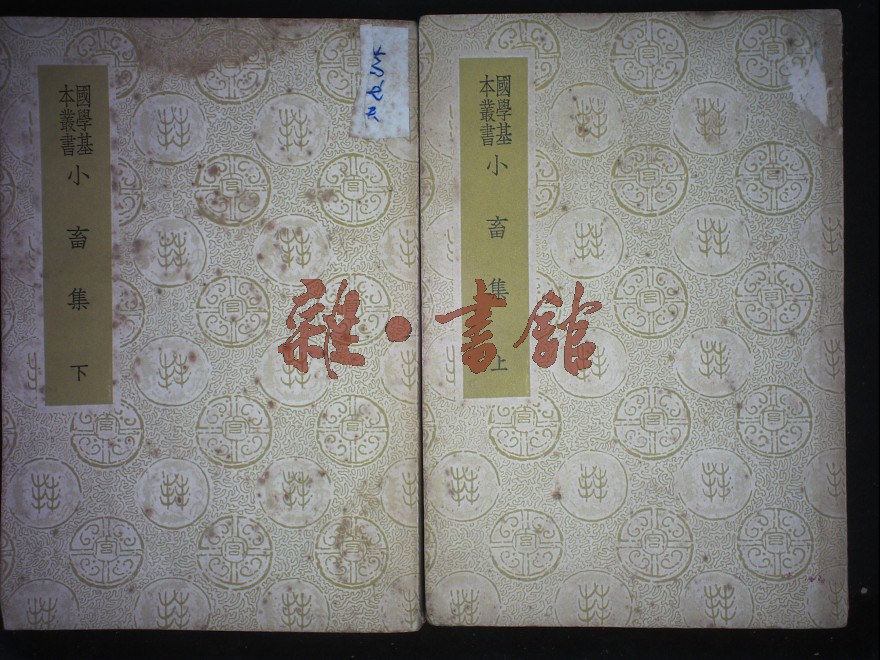 國學基
本叢書
小畜集
上
國學基
本叢書
小畜集
下
雜·書館